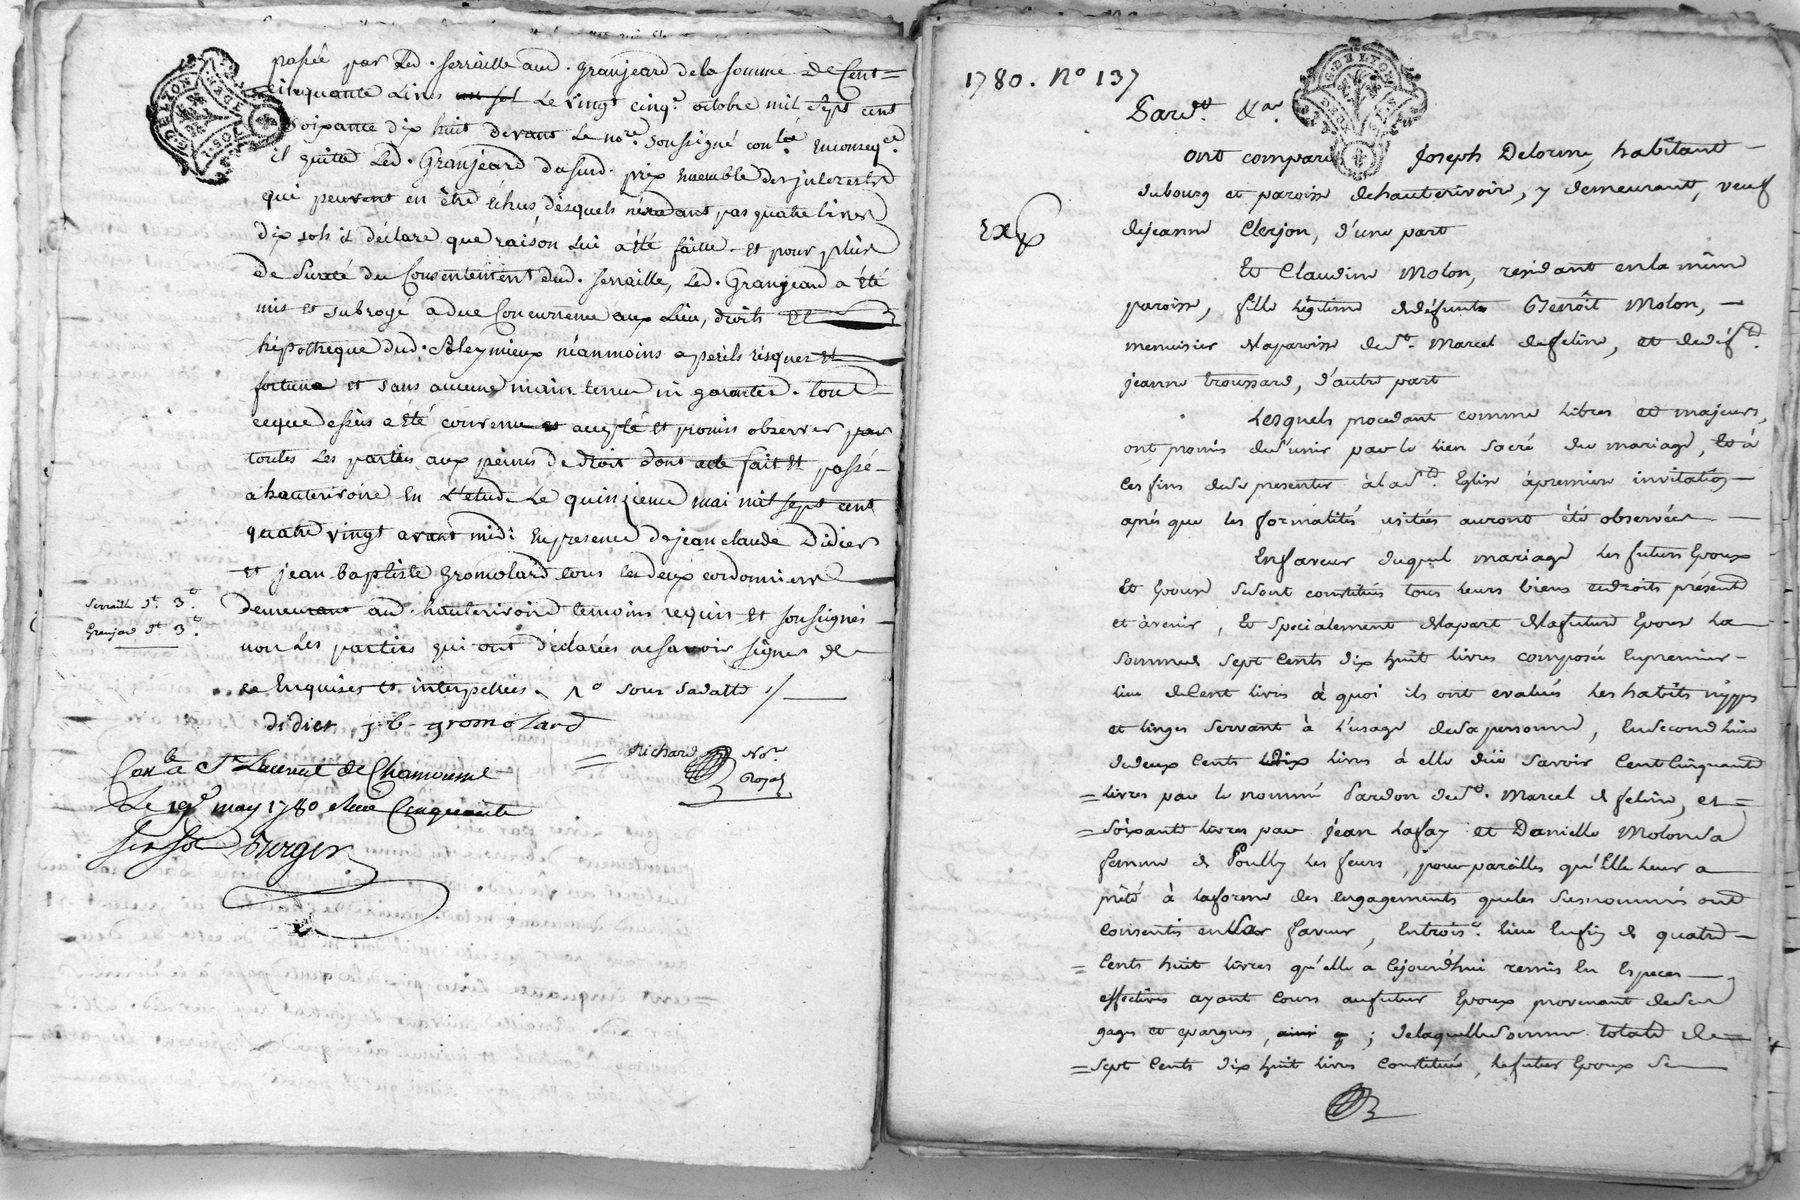 passée par led. serraille aud. granjeard de la somme de Cent
cinquante Livres Le vingt cinq.e octobre mil sept cent
soixante dix huit devant Le no.re soussigné con.lé En conseq.ce
il quitte Led. Granjeard dusurd. prix Ensemble des interests
qui peuvent en être échus, desquels n'éxcedant pas quatre livres
dix sols il déclare que raison Lui a été faitte. Et pour plus
de sureté du Consentement dud. serraille, Led. Granjeard a été
mis et subrogé a due Concurrence aux Lieu, droits Et
hipotheque dud. Aleymieux néanmoins a perils risques et
fortune et sans aucune maintenue ni garantie. tout
ceque dessus a été convenu accepté et promis observer par
toutes Les parties aux peines de droit dont acte fait et passé
a hauterivoire En L'etude Le quinzieme mai mil sept cent
quatre vingt avant midi En presence de jean claude Didier
et jean baptiste gromolard tous les deux cordonniers
demeurant aud. hauterivoire temoins requis et soussignés
non Les parties qui ont déclarées ne savoir signer de
ce Enquises et interpellées.
didier j. b. gromolard
Richard No.re
Royal
Serraille d.t 3.
Granjar d.t 3.
Con.lé a St Laurent de Chamousset
Le may 1780 Cinquante
six sol Burger
G. DE LYON
1780. No 137
Pard.t &a.
Ont comparu Joseph Delorme, habitant
dubourg et paroisse dehauterivoir, y demeurant, veuf
dejeanne Clerjon, d'une part
Exp
Et Claudine Molon, residant enla même
paroisse, fille légitime dedéfunts Benoît Molon,
menuisier delaparoisse de St. Marcel defeline, et dedéf.te
jeanne troussard, d'autre part
Lesquels procedant comme Libres et majeurs,
ont promis des'unir par le lien sacré du mariage, Et à
ces fins dese presenter à la Ste. Eglise à premiere invitation
aprés que les formalités usitées auront été observées
Enfaveur duquel mariage Les futurs Epoux
Et Epouse sesont constitués tous leurs biens endroits présents
et àvenir, Et Specialement delapart delafuture Epouse La
Somme de Sept Cents dix huit livres composée Enpremier
lieu deCent livres à quoi ils ont evalués Les habits nippes
et linges servant à l'usage desapersonne, Ensecond lieu
dedeux Cents dix livres à elle düe Savoir Cent Cinquante
livres par le nommé Pardon de St. Marcel de feline, et
soixante livres par jean Lafay et Danielle Molon Sa
femme de Poully Les feurs, pour pareilles qu'Elle Leur a
prêté à laforme des Engagements queles Susnommés ont
Consentis en sa faveur, Entrois.e lieu Enfin de quatre
Cents huit livres qu'elle a Cejourd'hui remis En Especes
effectives ayant Cours aufutur Epoux provenant deses
gages et epargnes, ; delaquelle Somme totale de
Sept Cents dix huit livres Constitués, lefutur Epoux Se